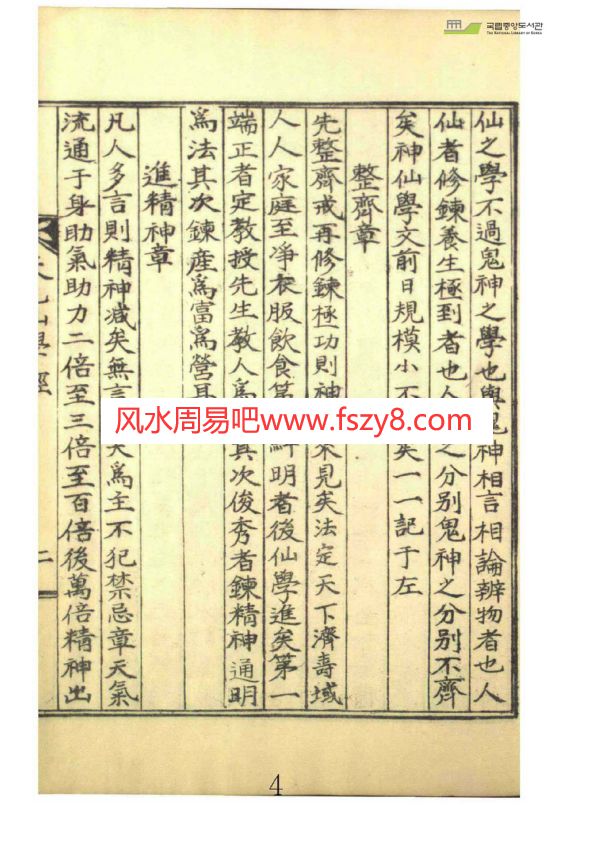 국립중앙도서관
THE NATIONAL LIBRARY OF KOREA
仙之學不過鬼神之學也與鬼神相言相論辨物者也人
仙者修鍊養生極到者也人之分別鬼神之分別不齊
矣神仙學文前日規模小不矣一一記于左
整齊章
先整齊戒再修鍊極功則神來見矣法定天下濟壽域
人人家庭至凈衣服飮食第鮮明者後仙學進矣第一
端正者定敎授先生敎人爲其次俊秀者鍊精神通明
爲法其次鍊産爲富爲營
進精神章
凡人多言則精神減矣無言天爲主不犯禁忌章天氣
流通于身助氣助力二倍至三倍至百倍後萬倍精神出
學經
二
风水周易吧www.fszy8.com
4